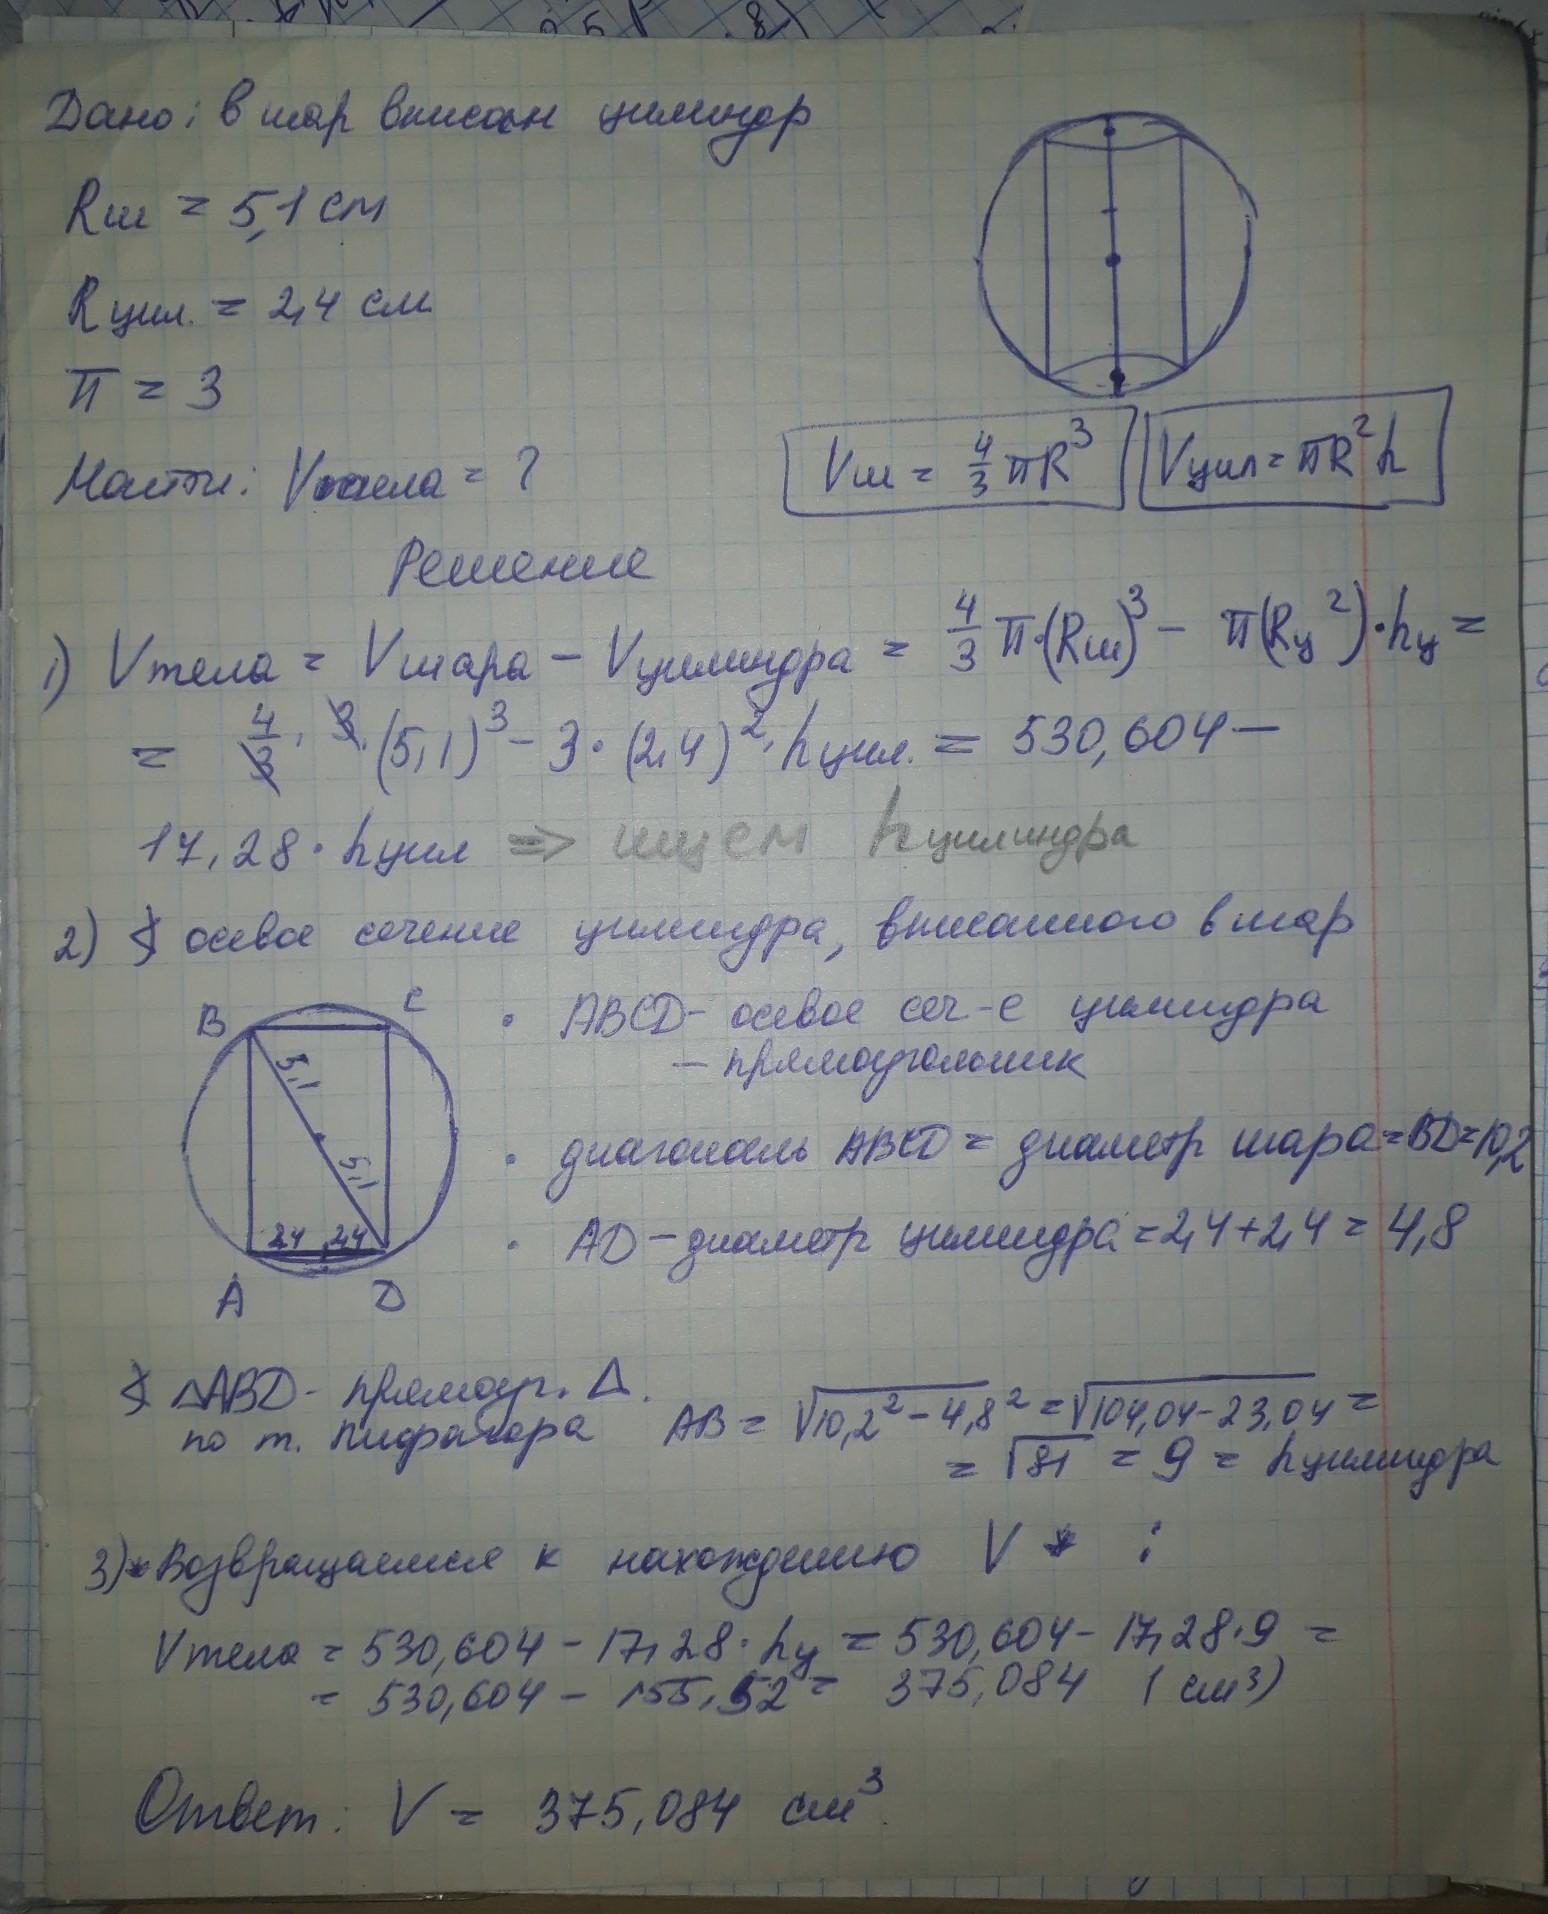 Дано: в шар вписан цилиндр
Rш = 5,1 см
Rцил. = 2,4 см
π = 3
Найти: Vтела = ?
Vш = 4/3 πR³
Vцил = πR²h
Решение
1) Vтела = Vшара – Vцилиндра = 4/3 π·(Rш)³ – π(Rц²)·hц =
= 4/3 · 3 · (5,1)³ – 3·(2,4)²·hцил. = 530,604 –
17,28·hцил => ищем hцилиндра
2) осевое сечение цилиндра, вписанного в шар
B C
5,1
5,1
2,4 2,4
A D
• ABCD – осевое сеч-е цилиндра
– прямоугольник
• диагональ ABCD = диаметр шара = BD = 10,2
• AD – диаметр цилиндра = 2,4+2,4 = 4,8
△ABD – прямоуг. △.
по т. Пифагора AB = √10,2² – 4,8² = √104,04 – 23,04 =
= √81 = 9 = hцилиндра
3) Возвращаемся к нахождению V :
Vтела = 530,604 – 17,28·hц = 530,604 – 17,28·9 =
= 530,604 – 155,52 = 375,084 (см³)
Ответ: V = 375,084 см³.